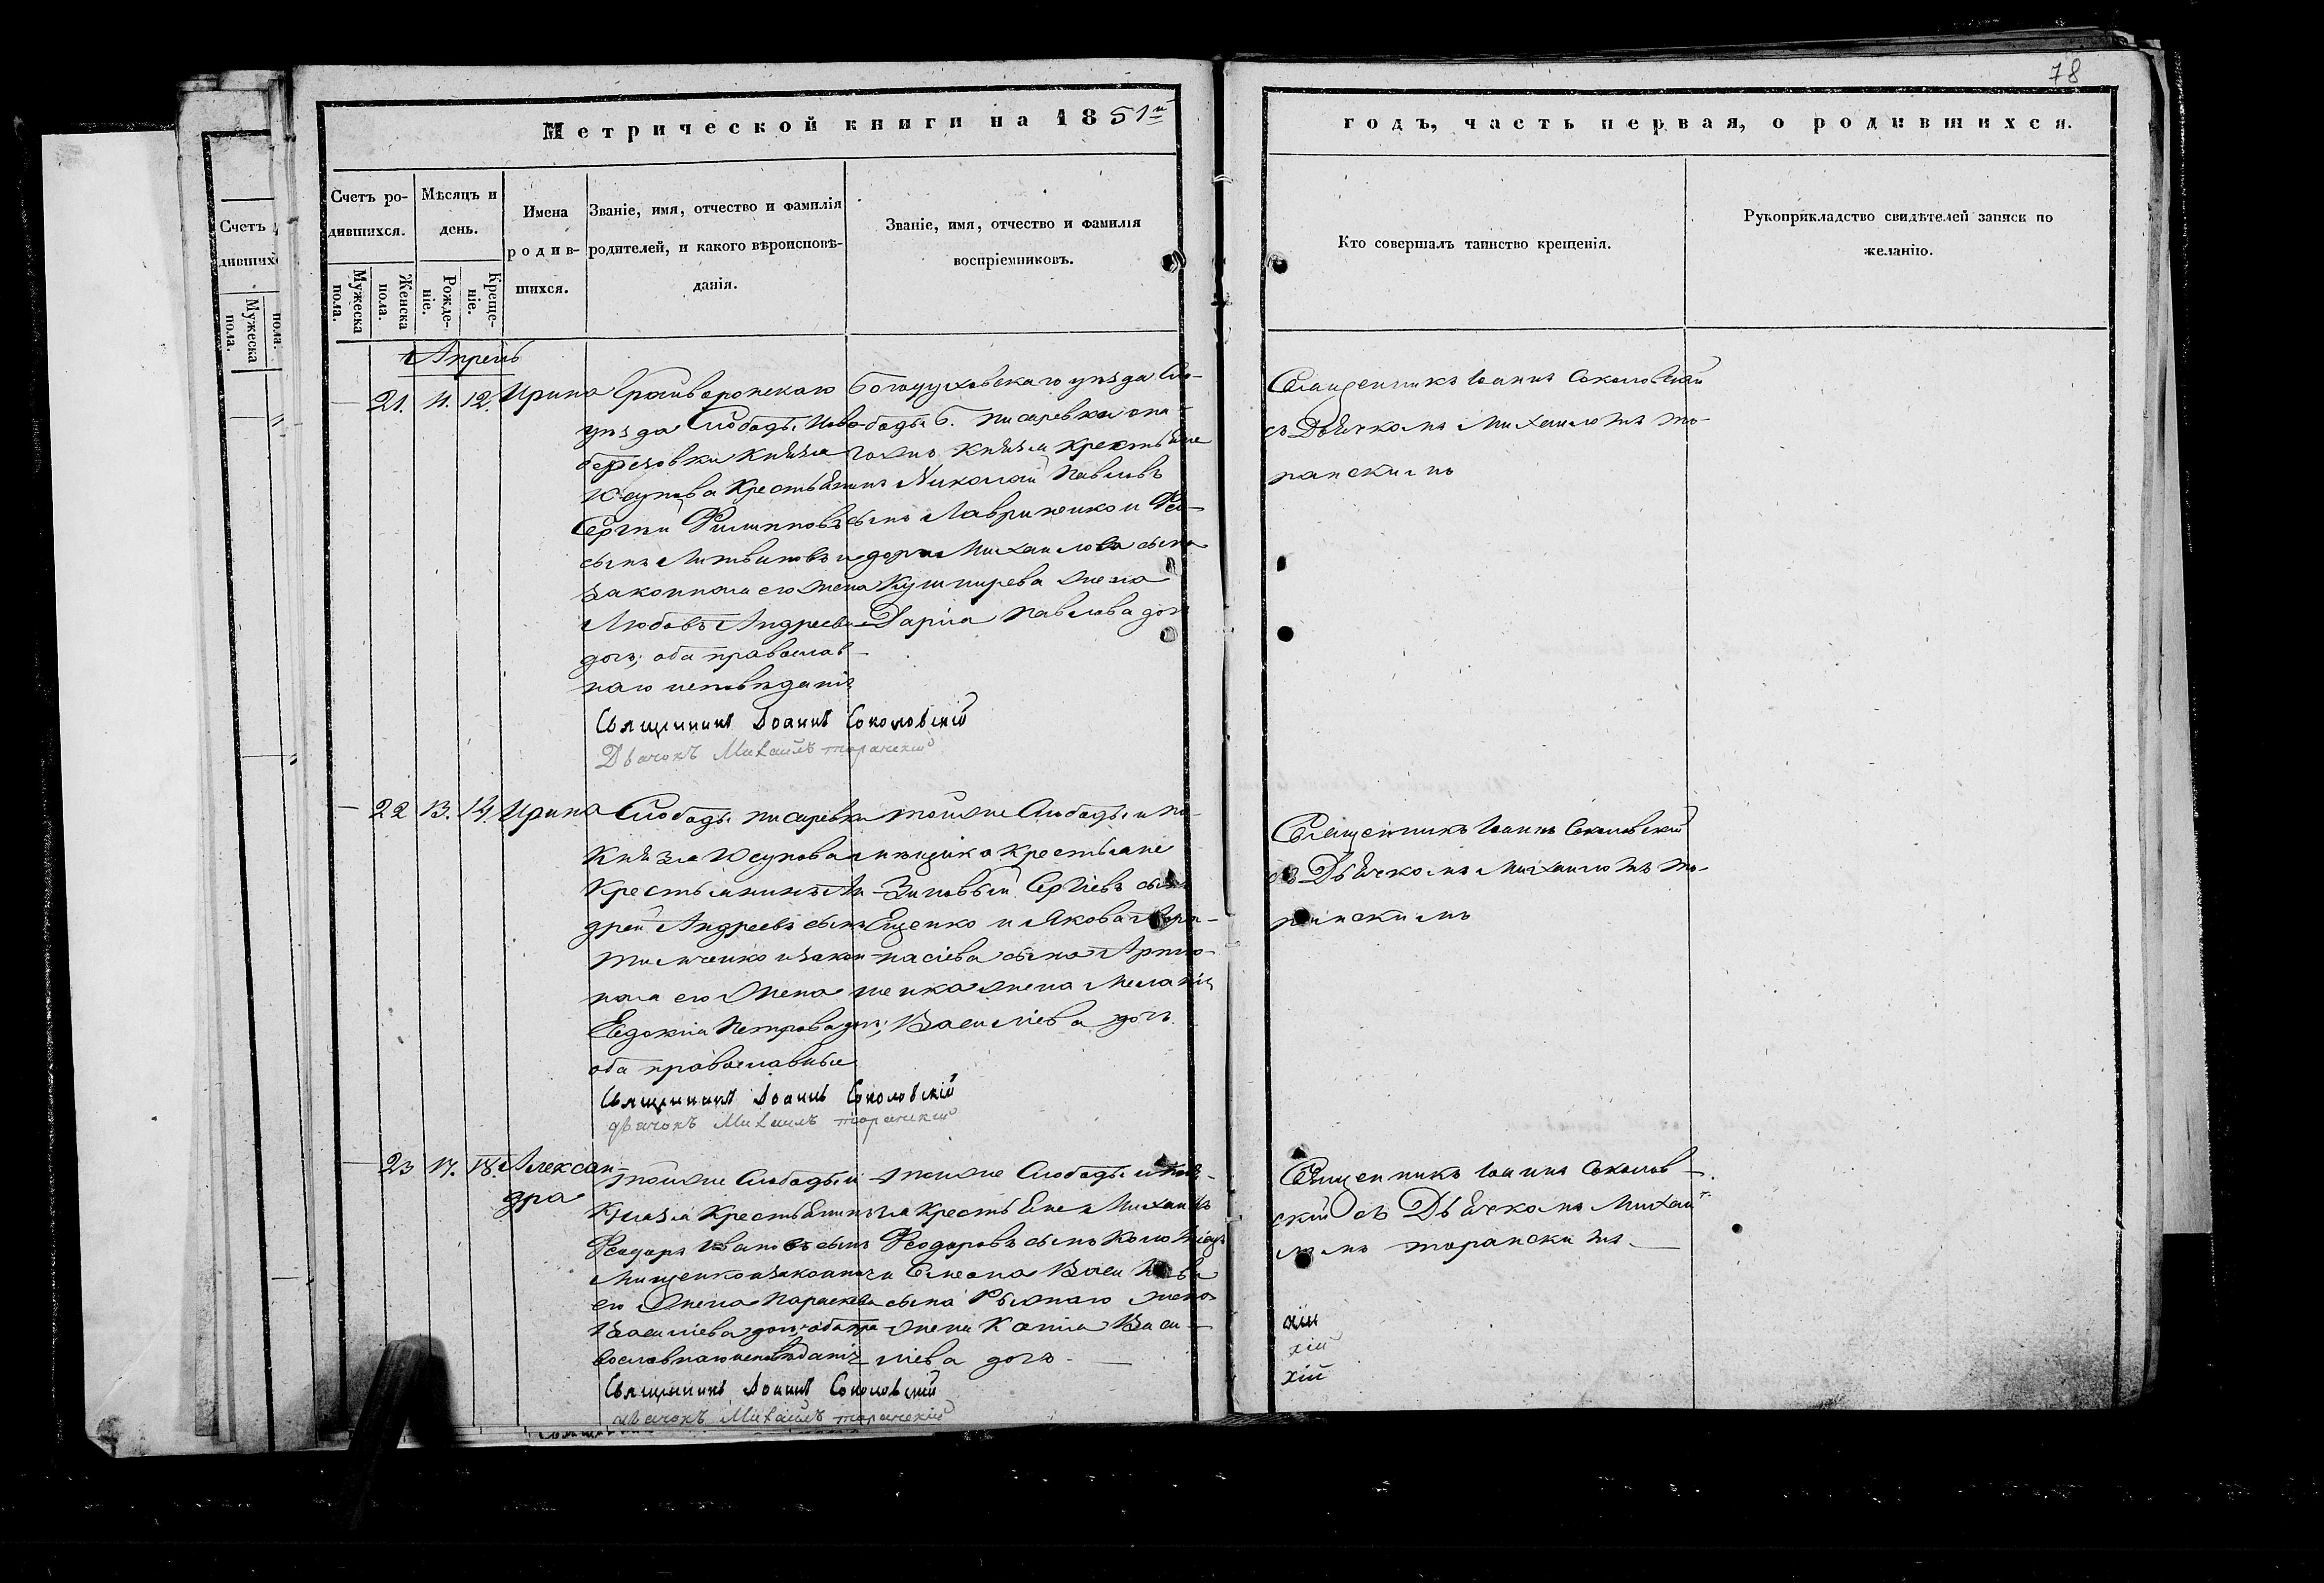 78
Метрической книги на 1851й
годъ, часть первая, о родившихся.
Счетъ родившихся.
Мужеска пола.
Женска пола.
Мѣсяцъ и день.
Рожденіе.
Крещеніе.
Имена родившихся.
Званіе, имя, отчество и фамилія
родителей, и какого вѣроисповѣ-
данія.
Званіе, имя, отчество и фамилія
воспріемниковъ.
Кто совершалъ таинство крещенія.
Рукоприкладство свидѣтелей записи по
желанію.
Счетъ
дившихс
Мужеска пола.
пола.
Апрель
21. 11. 12. Ирина
Грайворонскаго
уѣзда Слободы Ново-
березовки Князя
Юсупова Крестьянинъ
Сергій Филипповъ
сынъ Литвиновъ и
законная его жена
Любовь Андреева
дочь; оба православ-
наго исповѣданія
Богодуховскаго уѣзда Сло-
боды Б. Писаревки
Князя Крестьяне
Николай Павловъ
сынъ Лавриненко и Фео-
дора Михаилова сына
Кушнирева жена
Дарія Павлова доч
Священникъ Іоаннъ Соколовскій
Дьячокъ Михаилъ Торанскій
Священникъ Іоаннъ Соколовскій
съ Дьячкомъ Михаиломъ То-
ранскимъ
22 13. 14. Ирина
Слободы Писаревки
Князя Юсупова
Крестьянинъ Ан-
дрей Андреевъ сынъ
и закон-
ная его жена
Евдокія Петрова доч;
оба православные
тойже Слободы и по-
мѣщика Крестьяне
Зиновій Сергіевъ сынъ
Ященко и Якова Афа-
насіева сына Артю-
шенка жена Меланія
Василіева дочь
Священникъ Іоаннъ Соколовскій
дьячокъ Михаилъ Торанскій
Священникъ Іоаннъ Соколовскій
съ Дьячкомъ Михаиломъ То-
ранскимъ
23 17. 18. Алексан-
дра
тойже Слободы и
Князя Крестьянинъ
Феодоръ Ивановъ сынъ
Мищенко и законная
его жена Параскева
Василіева доч; оба пра-
вославнаго исповѣданія
тойже Слободы и Кня-
зя Крестьяне Михаилъ
Феодоровъ сынъ
и Василіева
сына жена
Василіева дочь
Священникъ Іоаннъ Соколовскій
дьячокъ Михаилъ Торанскій
Священникъ Іоаннъ Соколов-
скій съ Дьячкомъ Михаи-
ломъ Торанскимъ
хій
хій